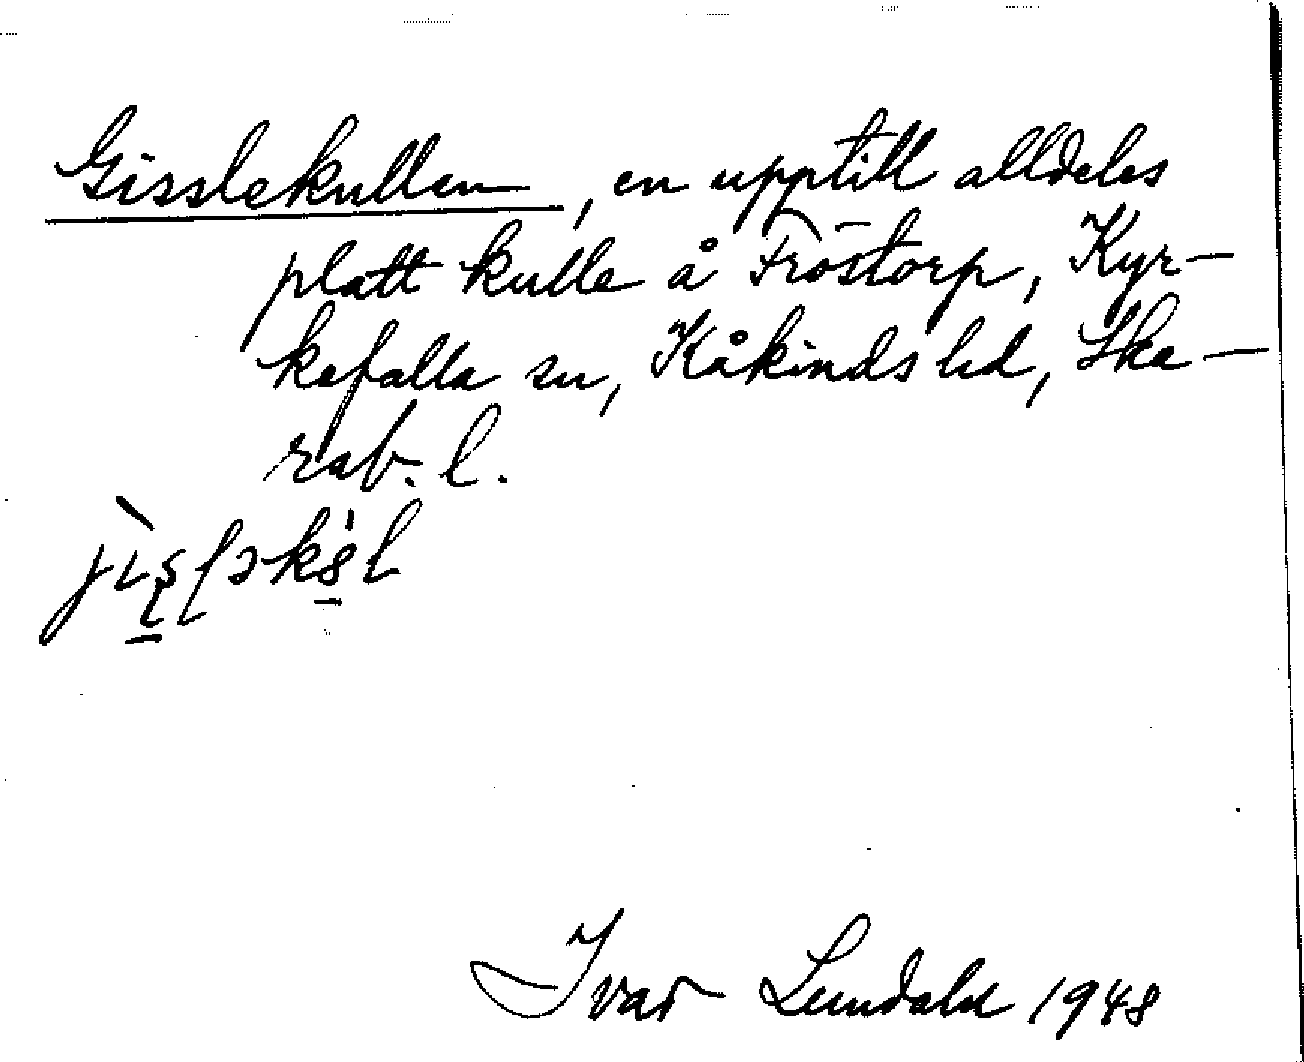 Gisslekullen, en upptill alldeles
platt kulle å Fröstorp, Kyr-
kefalla sn, Kåkinds hd, Ska-
rab. l.
Ivar Lundahl 1948